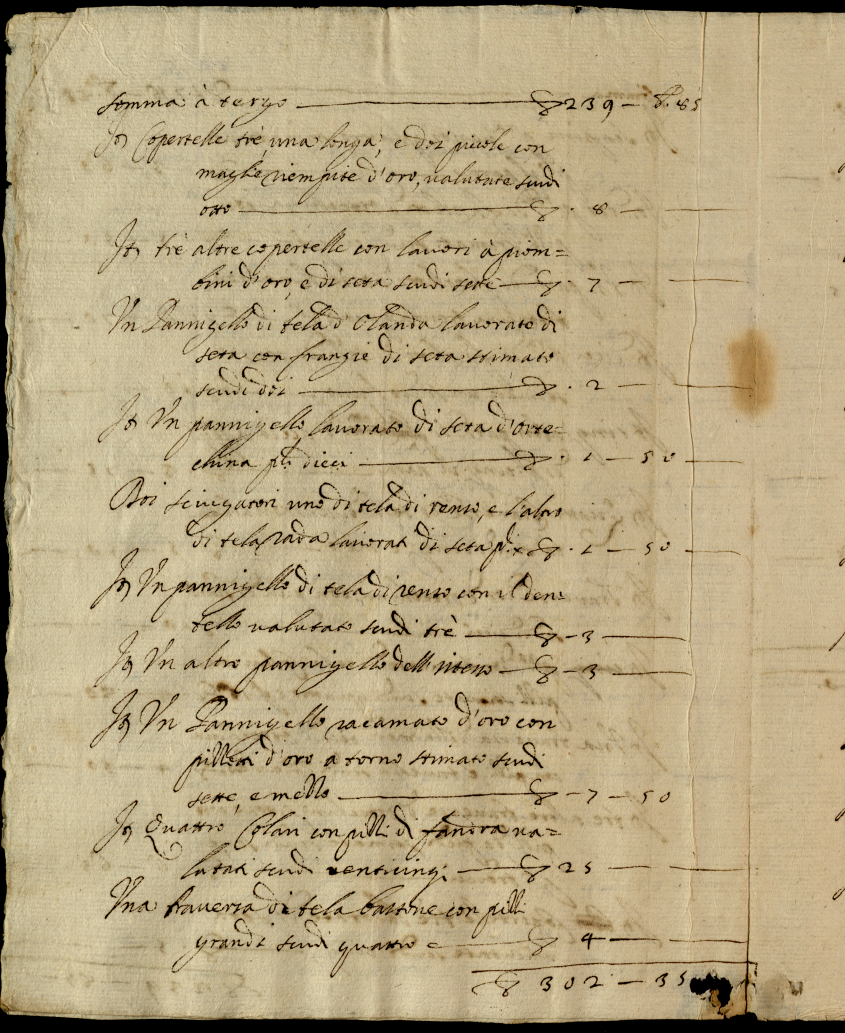 somma à tergo — ▽ 239 — b. 85
It Copertelle trè, una longa, e doi picole con
maglie riempite d'oro, valutate scudi
otto — ▽ . 8 —
It trè altre copertelle con lavori à piom=
bini d'oro, e di seta scudi sette — ▽ . 7 —
Un Pannigello di tela d'Olanda lavorato di
seta con frangie di seta stimato
scudi doi — ▽ . 2 —
It Un pannigello lavorato di seta d'orte=
china pli dieci — ▽ . 1 — 50
Doi sciugatori uno di tela di renso, e l'altro
di tela rada lavorati di seta pli x ▽ . 1 — 50
It Un pannigello di tela di renso con il den=
tello valutato scudi trè — ▽ – 3 —
It Un altro pannigello dell'istesso — ▽ – 3 —
It Un Pannigello racamato d'oro con
pizzetti d'oro a torno stimato scudi
sette, e mezzo — ▽ – 7 — 50
It Quattro Colari con pizzi di fiandra va=
lutati scudi venticinq; — ▽ 25 —
Una traversa di tela battone con pizzi
grandi scudi quattro — ▽ 4 —
▽ 302 — 35